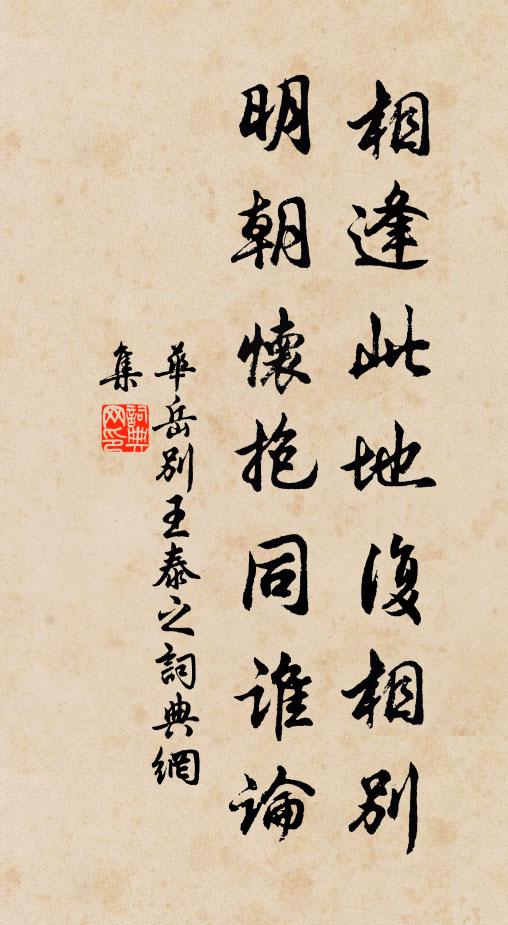 相逢此地復相別
明朝懷抱同誰論
華岳別王泰之詞典網
集
詞典
网印